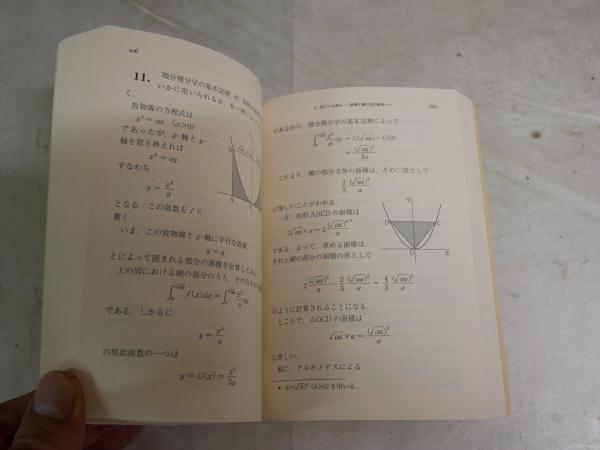 206
11. “微分積分学の基本定理”が、
いかに用いられるか、を一緒に
く．
放物線の方程式は
y² = ax (a≥0)
であったが、x-軸と y-
軸を取り換えれば
x² = ay
すなわち
y = x²/a
となる．この函数を f と
置く．
いま、この放物線と x-軸に平行な直線
y = a
とによって囲まれる部分の面積を計算してみ
上の図における網の部分のうち、その右半分
∫₀^√aa f(x)dx = ∫₀^√aa x²/a dx
である．しかるに
y = x²/a
の原始函数の一つは
y = G(x) = x³/3a
D
A
であるから、微分積分学の基本定理によって
∫₀^√aa x²/a dx = G(√aa) − G(0)
= (√aa)³/3a
これより、網の部分全体の面積は、その二倍として
2/3 (√aa)³/a
に等しいことがわかる．
一方、矩形 ABCD の面積は
2√aa × a = 2(√aa)³/a *
である．よって、求める面積は、
それと網の部分の面積の差として
2(√aa)³/a − 2/3 (√aa)³/a = 4/3 (√aa)³/a
のように計算されることになる．
ところで、△OCD の面積は
√aa × a = (√aa)³/a
に等しい．
前に、アルキメデスによる
Y
D
C
O
X